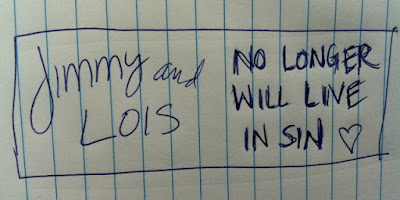 Jimmy and
LOIS
NO LONGER
WILL LIVE
IN SIN ♡